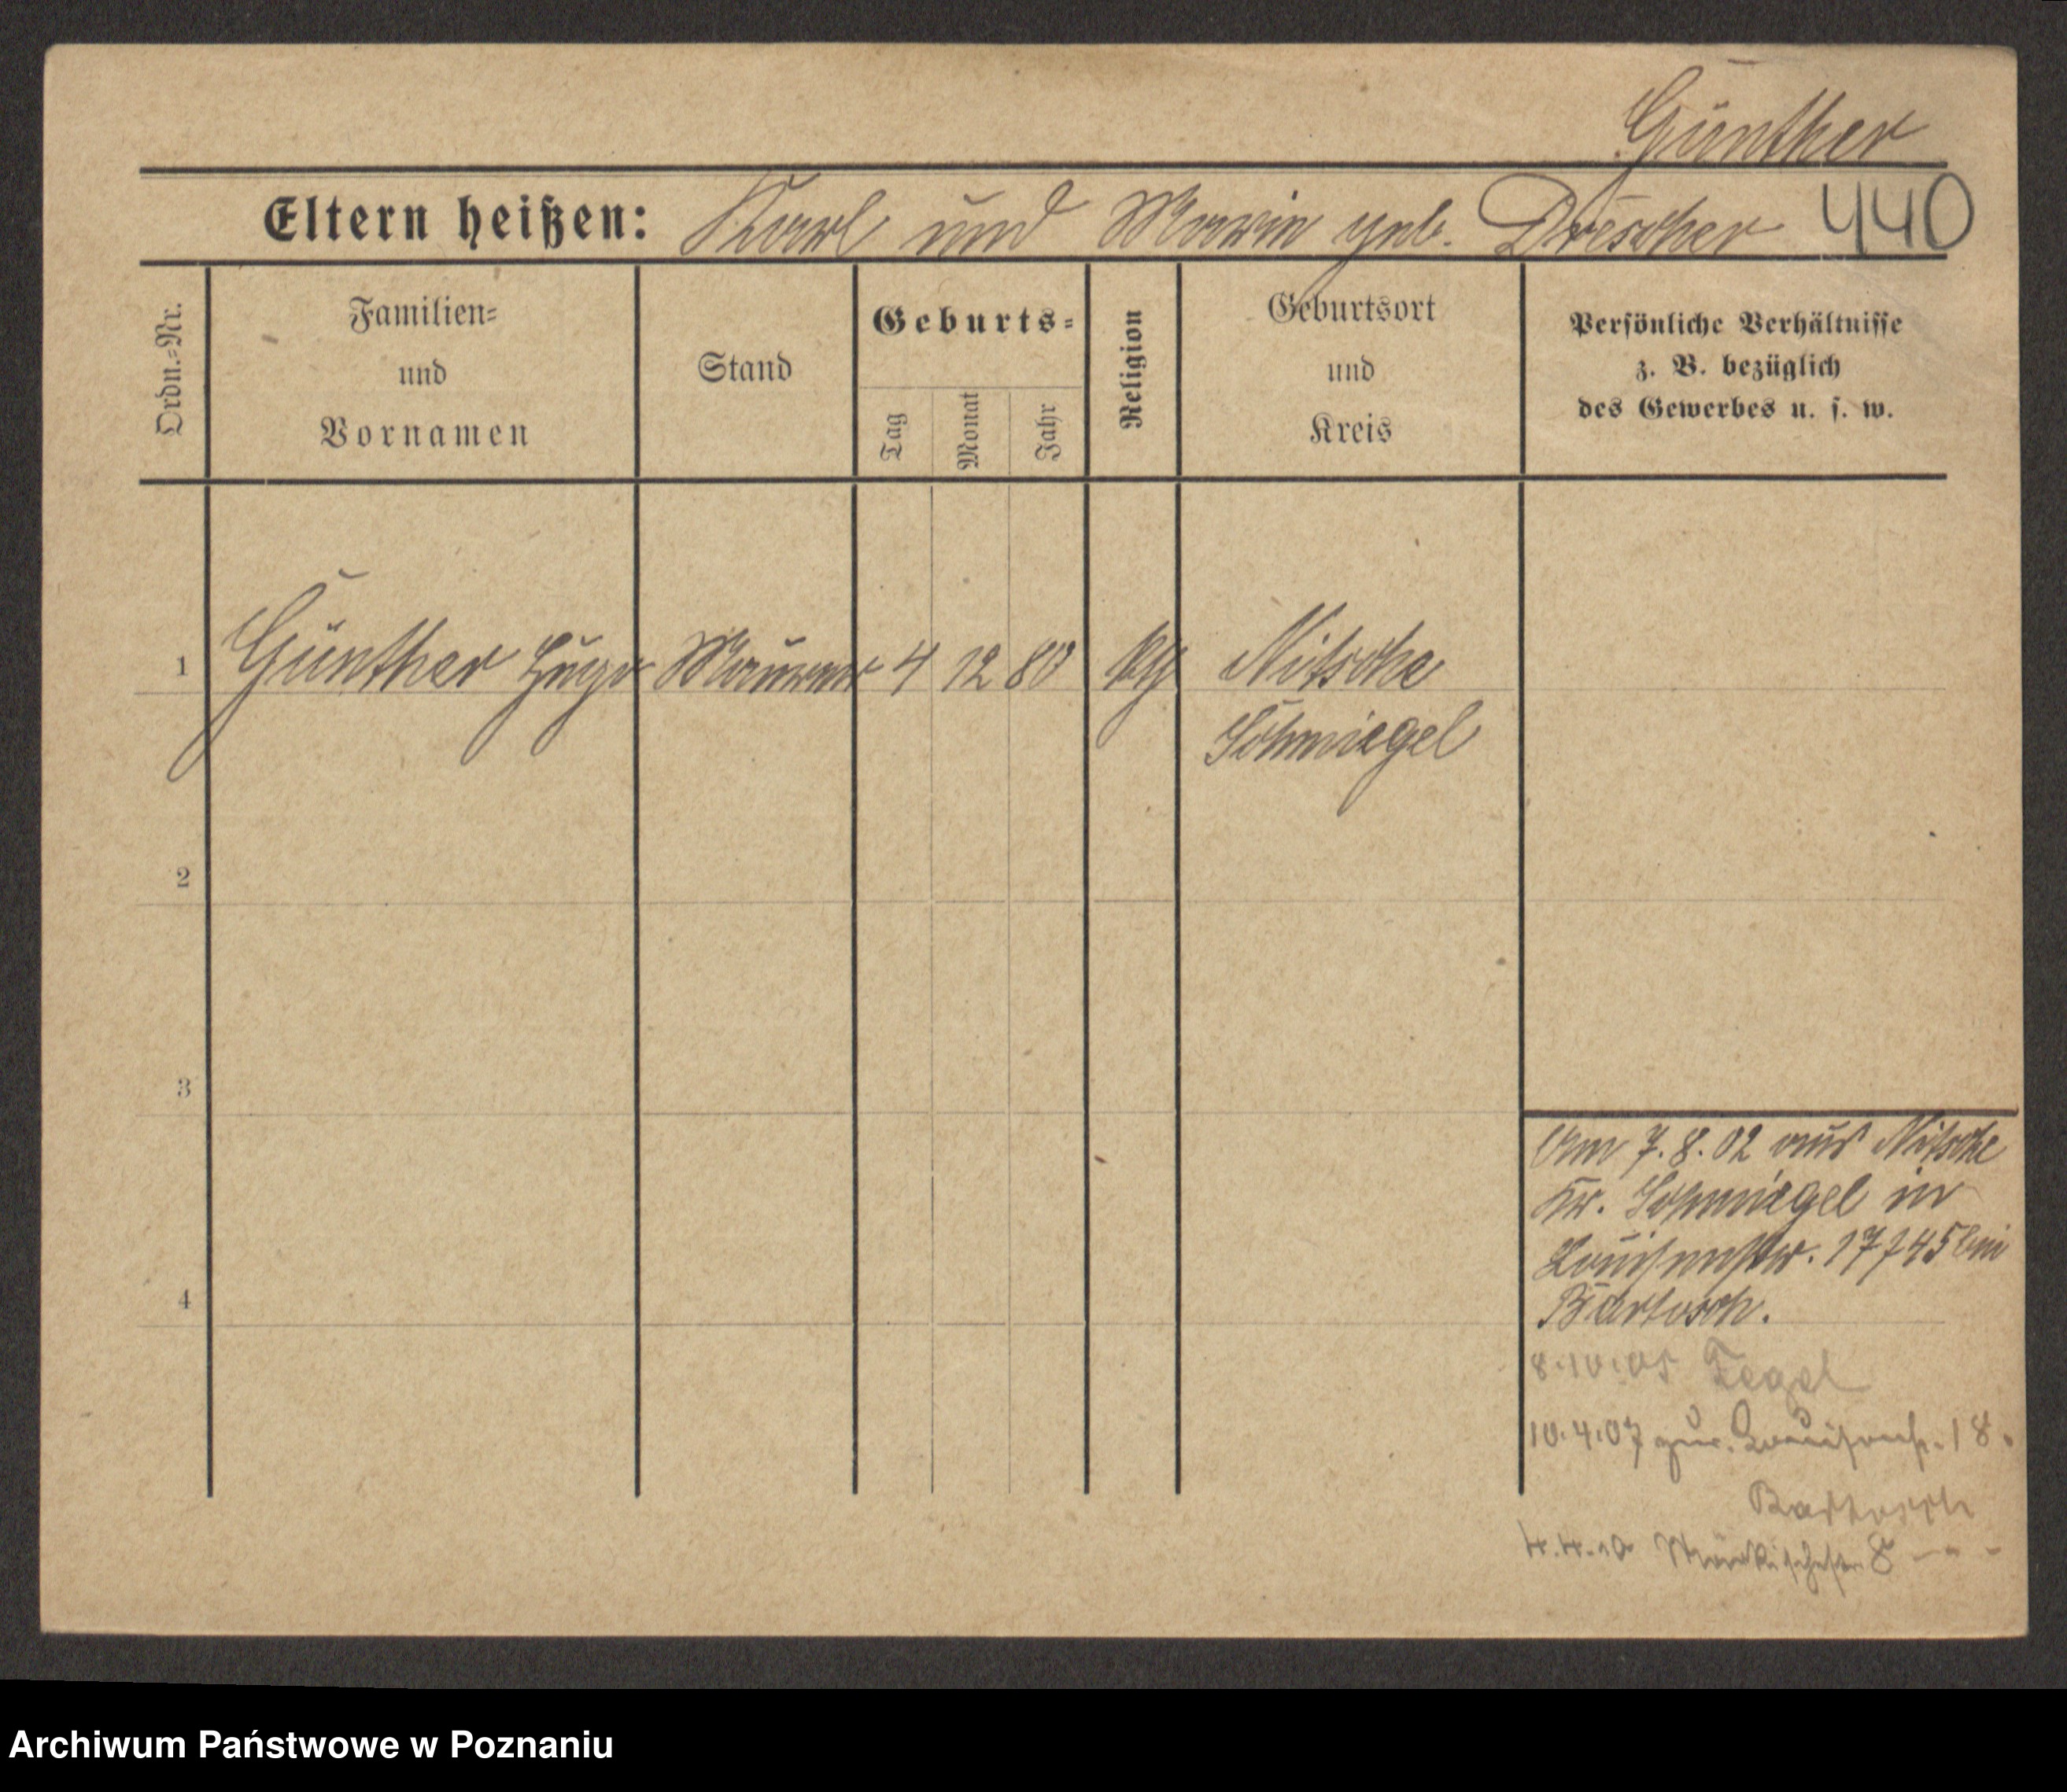 Günther
Eltern heißen: Karl und Marie geb. Drescher 440
Ordn.-Nr.
Familien-
und
Vornamen
Stand
Geburts-
Tag
Monat
Jahr
Religion
Geburtsort
und
Kreis
Persönliche Verhältnisse
z. B. bezüglich
des Gewerbes u. s. w.
1 Günther Hugo Maurer 4 12 80 Nitsche
Schmiegel
2
3
4
Am 7.8.02 aus Nitsche
Kr. Schmiegel in
Louisenstr. 17 bei
Bartosch.
8.10.05 Tegel
10.4.07 zur. Louisenstr. 18.
Bartosch
4.4.10 Märkischestr. 8
Archiwum Państwowe w Poznaniu